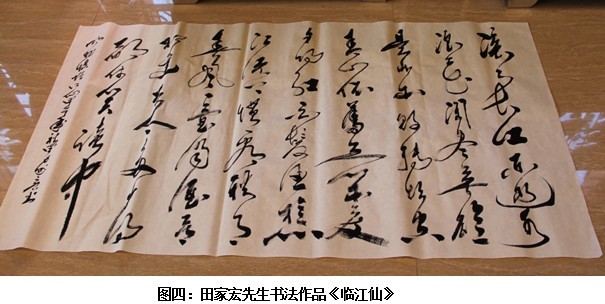 滚滚长江东逝水
浪花淘尽英雄
是非成败转头空
青山依旧在几度
夕阳红白发渔樵
江渚上惯看秋月
春风一壶浊酒喜
相逢古今多少事
都付笑谈中
图四：田家宏先生书法作品《临江仙》